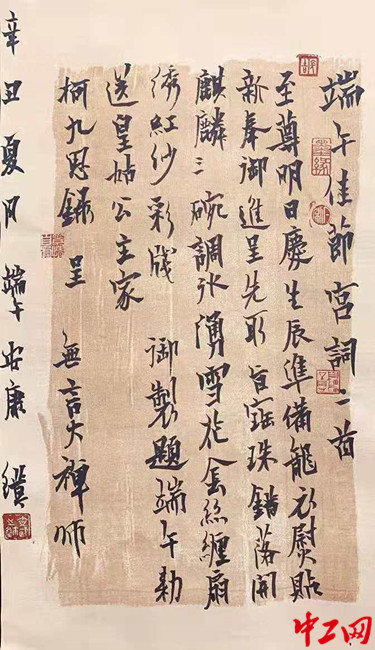 端午佳節宮詞二首
至尊明日慶生辰準備龍衣熨貼
新奉御進呈先取旨寶珠錯落間
麒麟碗調冰湧雪花金絲纏扇
綉紅紗彩牋 御製題端午勅
送皇姑公主家
柯九思錄 呈 無言大禅师
辛丑夏月端午安康
墨緣
中工网